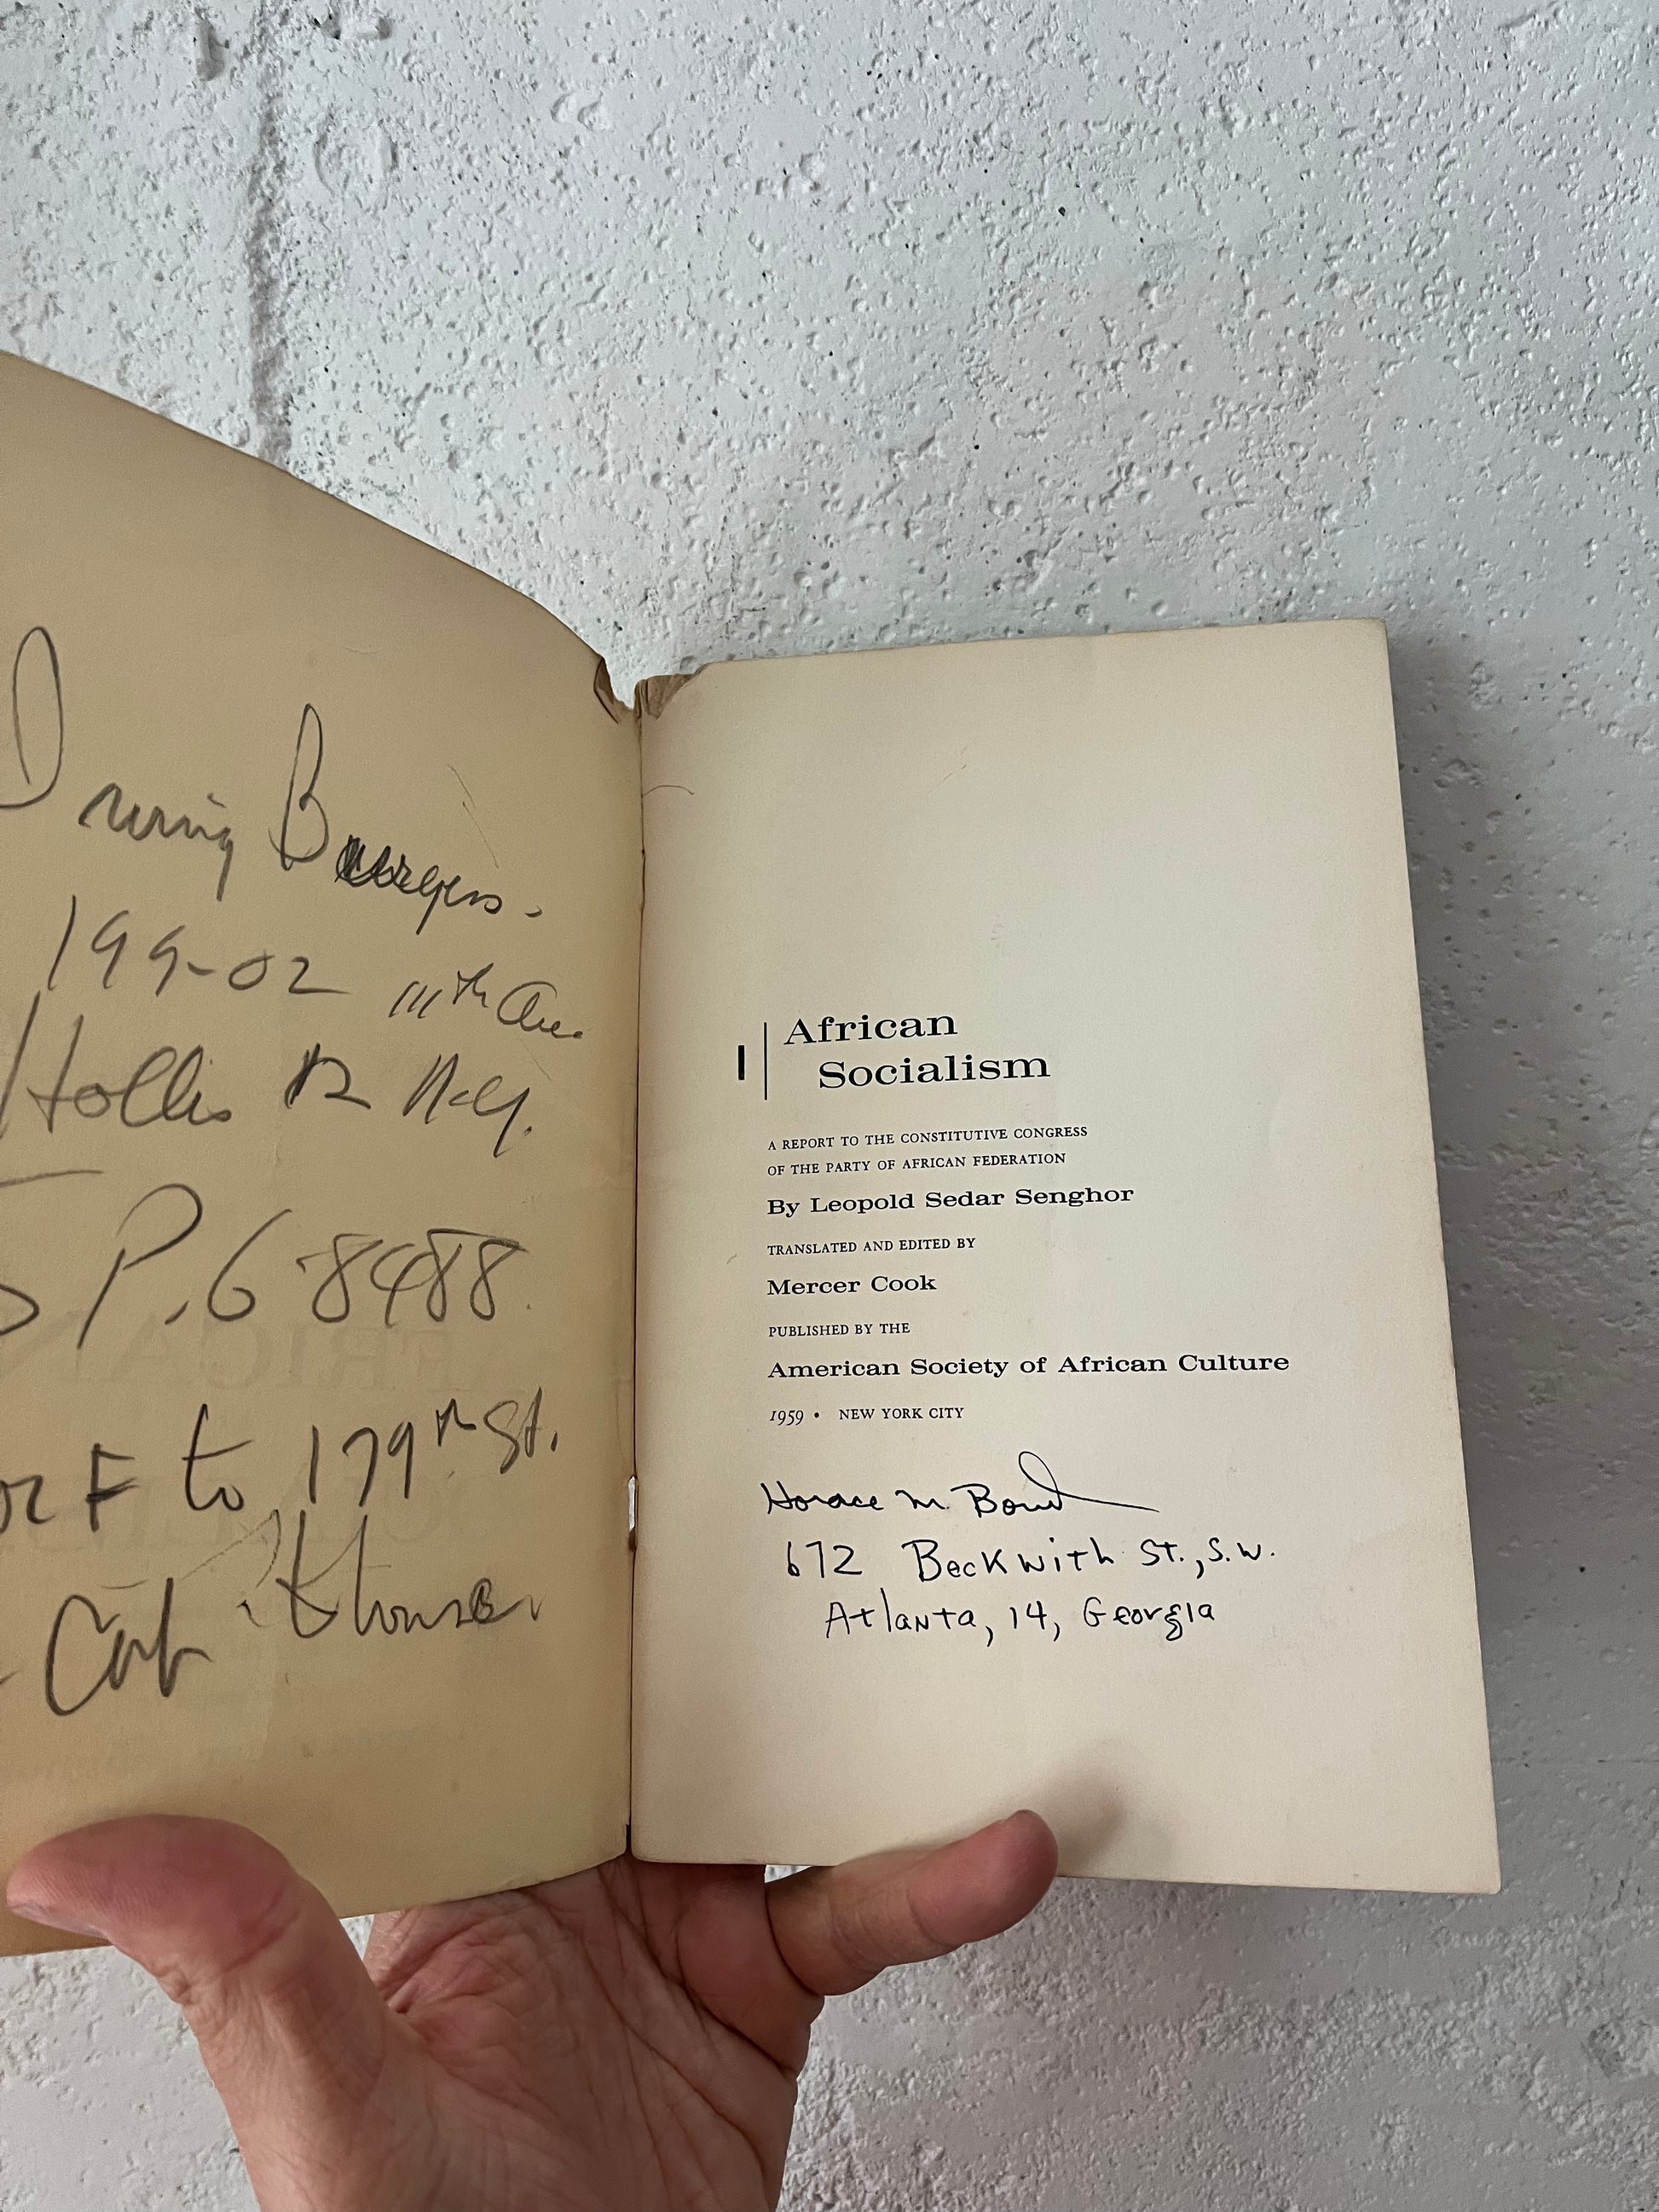 Burgess.
199-02 111th Ave.
Hollis 12 N.Y.
S P. 6-8488.
or F to 179th St.
Cab
African
Socialism
A REPORT TO THE CONSTITUTIVE CONGRESS
OF THE PARTY OF AFRICAN FEDERATION
By Leopold Sedar Senghor
TRANSLATED AND EDITED BY
Mercer Cook
PUBLISHED BY THE
American Society of African Culture
1959 • NEW YORK CITY
Horace M. Bond
672 Beckwith St., S.W.
Atlanta, 14, Georgia